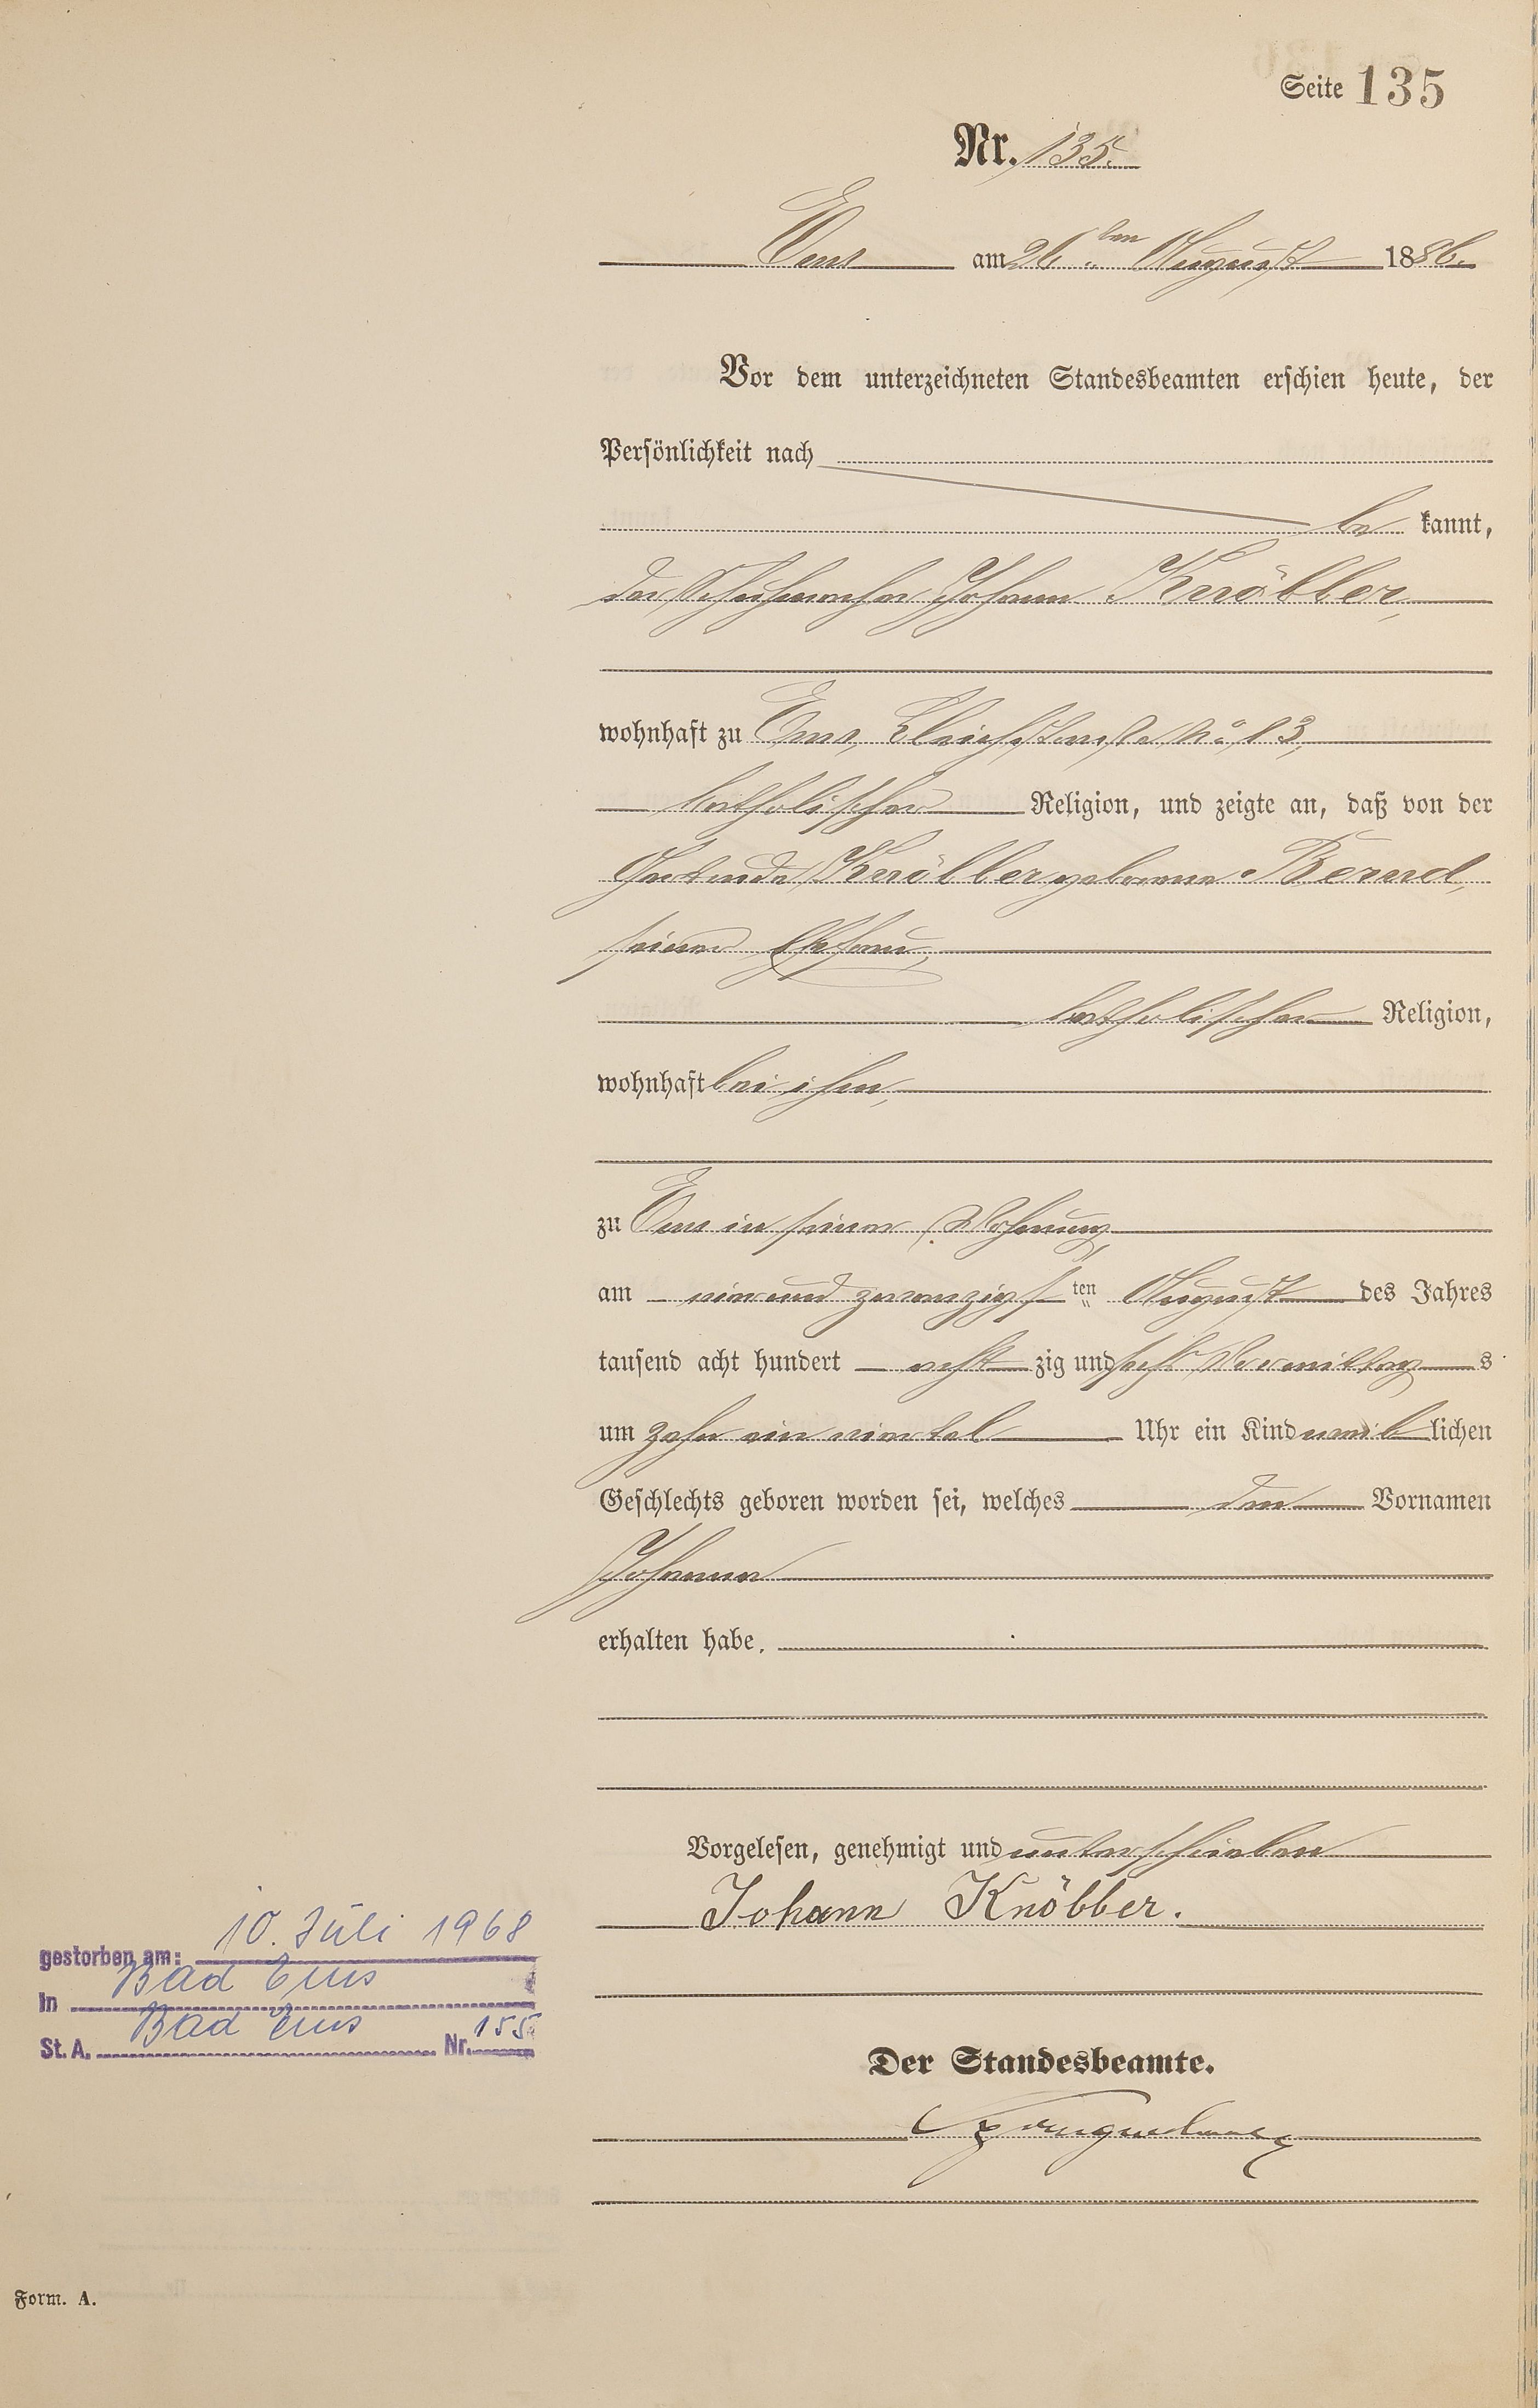 Seite 135
Nr. 135.
Ems am 26ten August 1886.
Vor dem unterzeichneten Standesbeamten erschien heute, der
Persönlichkeit nach
be kannt,
der Schuhmacher Johann Knöbber,
wohnhaft zu Ems, Bleichstraße No 13,
katholischer Religion, und zeigte an, daß von der
Gertrude Knöbber geborene Bernd,
seiner Ehefrau,
katholischer Religion,
wohnhaft bei ihm,
zu Ems in seiner Wohnung
am vierundzwanzigsten August des Jahres
tausend acht hundert acht zig und sechs Vormittags
um zehn ein viertel Uhr ein Kind weiblichen
Geschlechts geboren worden sei, welches den Vornamen
Johanna
erhalten habe.
Vorgelesen, genehmigt und unterschrieben
Johann Knöbber.
gestorben am: 10. Juli 1968
in Bad Ems
St. A. Bad Ems Nr. 155
Der Standesbeamte.
Form. A.